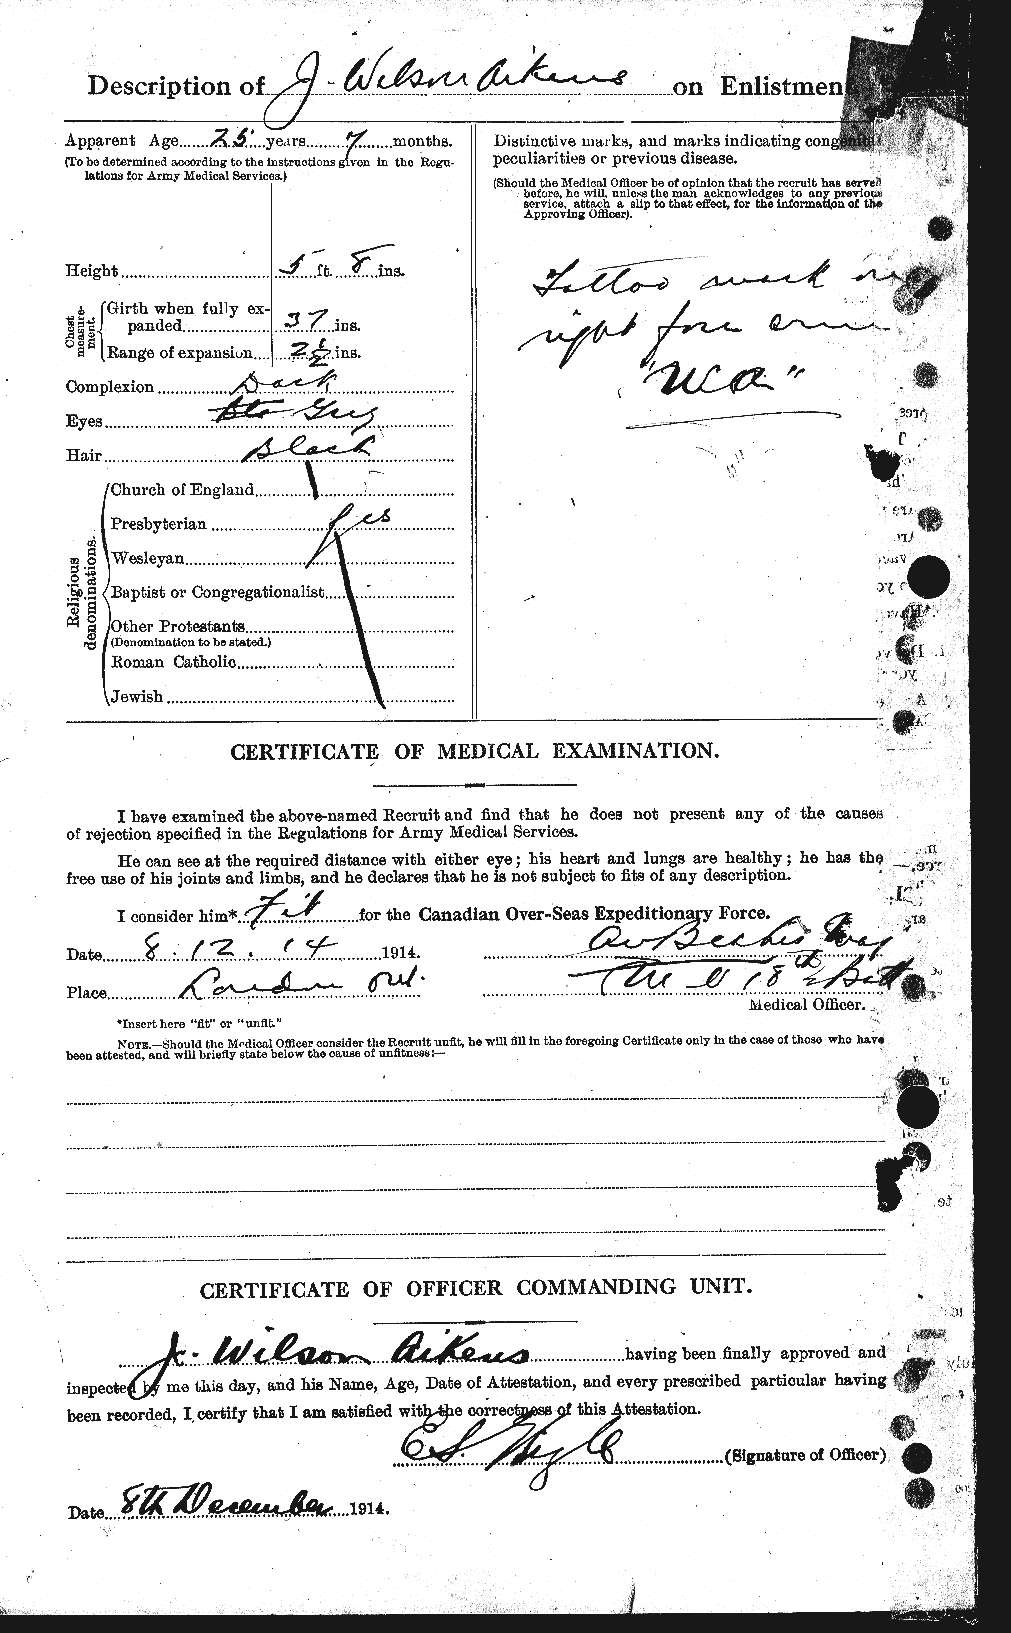 Description of J. Wilson Aikens on Enlistmen
Apparent Age 25 years 7 months.
(To be determined according to the instructions given in the Regu-
lations for Army Medical Services.)
Height 5 ft. 8 ins.
Chest measure-
ment.
Girth when fully ex-
panded 37 ins.
Range of expansion 2½ ins.
Complexion Dark
Eyes Grey
Hair Black
Religious
denominations.
Church of England
Presbyterian yes
Wesleyan
Baptist or Congregationalist
Other Protestants
(Denomination to be stated.)
Roman Catholic
Jewish
Distinctive marks, and marks indicating congenital
peculiarities or previous disease.
(Should the Medical Officer be of opinion that the recruit has served
before, he will, unless the man acknowledges to any previous
service, attach a slip to that effect, for the information of the
Approving Officer).
Tattoo mark on
right fore arm
"WA"
CERTIFICATE OF MEDICAL EXAMINATION.
I have examined the above-named Recruit and find that he does not present any of the causes
of rejection specified in the Regulations for Army Medical Services.
He can see at the required distance with either eye; his heart and lungs are healthy; he has the
free use of his joints and limbs, and he declares that he is not subject to fits of any description.
I consider him* Fit for the Canadian Over-Seas Expeditionary Force.
Date 8.12.14 1914.
Place London Ont.
M O 18th Batt
Medical Officer.
*Insert here "fit" or "unfit."
NOTE.—Should the Medical Officer consider the Recruit unfit, he will fill in the foregoing Certificate only in the case of those who have
been attested, and will briefly state below the cause of unfitness:—
CERTIFICATE OF OFFICER COMMANDING UNIT.
J. Wilson Aikens having been finally approved and
inspected by me this day, and his Name, Age, Date of Attestation, and every prescribed particular having
been recorded, I certify that I am satisfied with the correctness of this Attestation.
E.S. Wigle (Signature of Officer)
Date 8th December 1914.